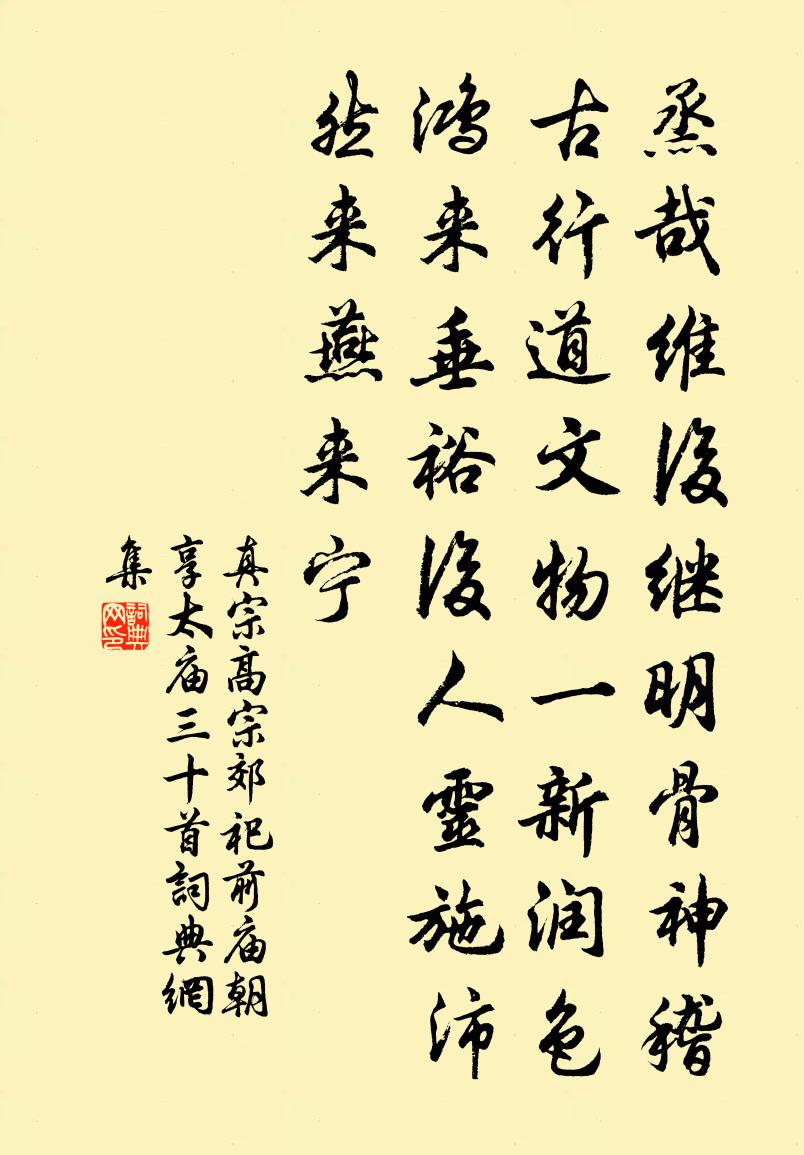 烝哉维後继明骨神稽
古行道文物一新润色
鸿来垂裕後人靈施沛
然来燕来宁
真宗高宗郊祀前庙朝
享太庙三十首詞典網
集
詞典网印